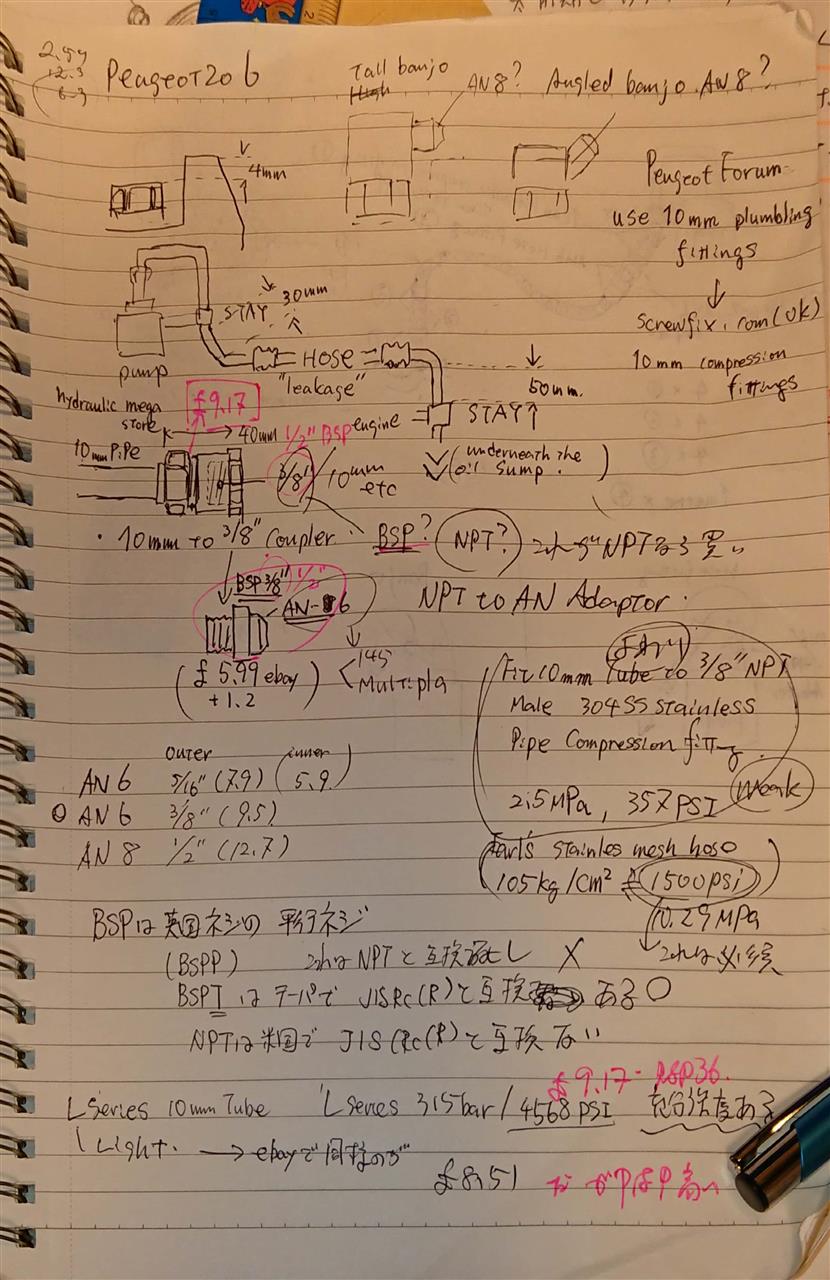 2.54
12.3
6.3
Peugeot 206
Tall banjo
AN8?
Angled banjo. AN8?
4mm
Peugeot Forum
use 10mm plumbling
fittings
↓
Screwfix.com (UK)
10mm compression
fittings
STAY
30mm
pump
HOSE
"leakage"
50mm
engine
STAY↑
(underneath the
oil sump.)
hydraulic mega
store
£9.17
40mm
1/2" BSP
10mm Pipe
3/8"
10mm
etc
・10mm to 3/8" Coupler
BSP?
NPT?
NPTなら買い
BSP 3/8" 1/2"
AN-6
NPT to AN Adaptor.
(£5.99 ebay)
+1.2
145
Multipla
Fit 10mm Tube to 3/8" NPT
Male 304SS Stainless
Pipe Compression
2.5MPa, 357PSI
Weak
outer
(inner
AN 6 5/16" (7.9) (5.9)
AN 6 3/8" (9.5)
AN 8 1/2" (12.7)
Earl's Stainles mesh hose
105kg/cm² 1500psi
10.29MPa
BSPは英国ネジの 平行ネジ
(BSPP) これはNPTと互換 X
BSPTはテーパで JISRc(R)と互換 ある○
NPTは米国で JIS(Rc(R)と互換ない
£9.17-
L Series 10mm Tube 'L Series 315bar/4568 PSI 充分強度ある
Light. → ebayで同様のが
£8.51